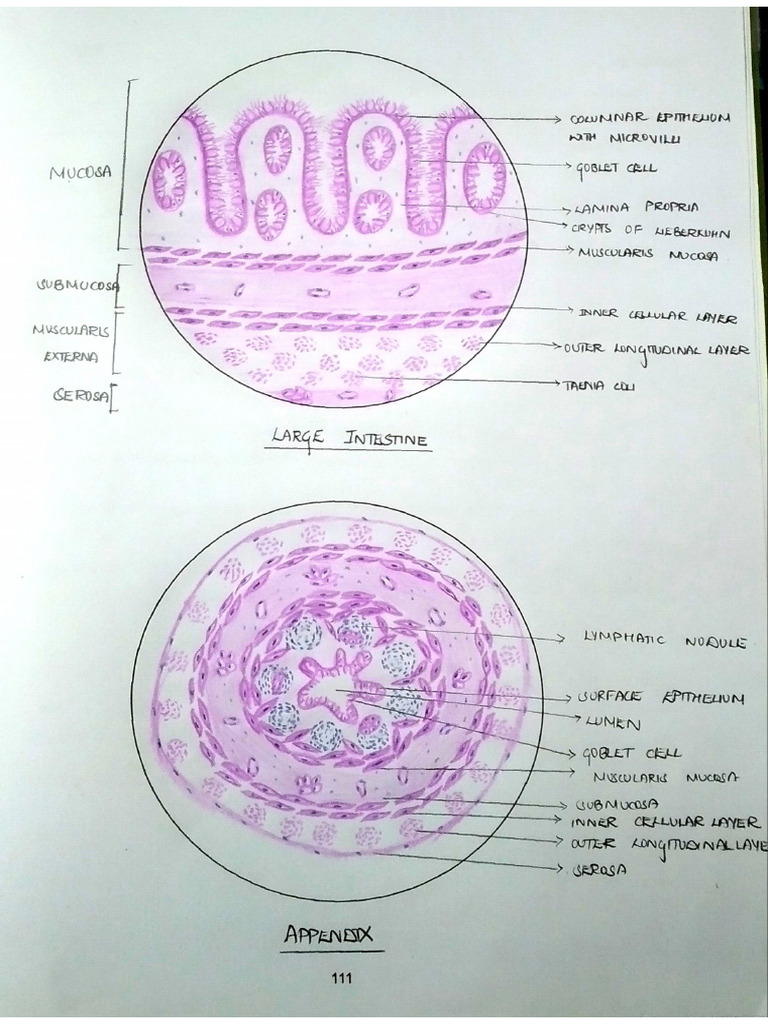 MUCOSA
SUBMUCOSA
MUSCULARIS
EXTERNA
SEROSA
COLUMNAR EPITHELIUM
WITH MICROVILLI
GOBLET CELL
LAMINA PROPRIA
CRYPTS OF LIEBERKUHN
MUSCULARIS MUCOSA
INNER CELLULAR LAYER
OUTER LONGITUDINAL LAYER
TAENIA COLI
LARGE INTESTINE
LYMPHATIC NODULE
SURFACE EPITHELIUM
LUMEN
GOBLET CELL
MUSCULARIS MUCOSA
SUBMUCOSA
INNER CELLULAR LAYER
OUTER LONGITUDINAL LAYE
SEROSA
APPENDIX
111